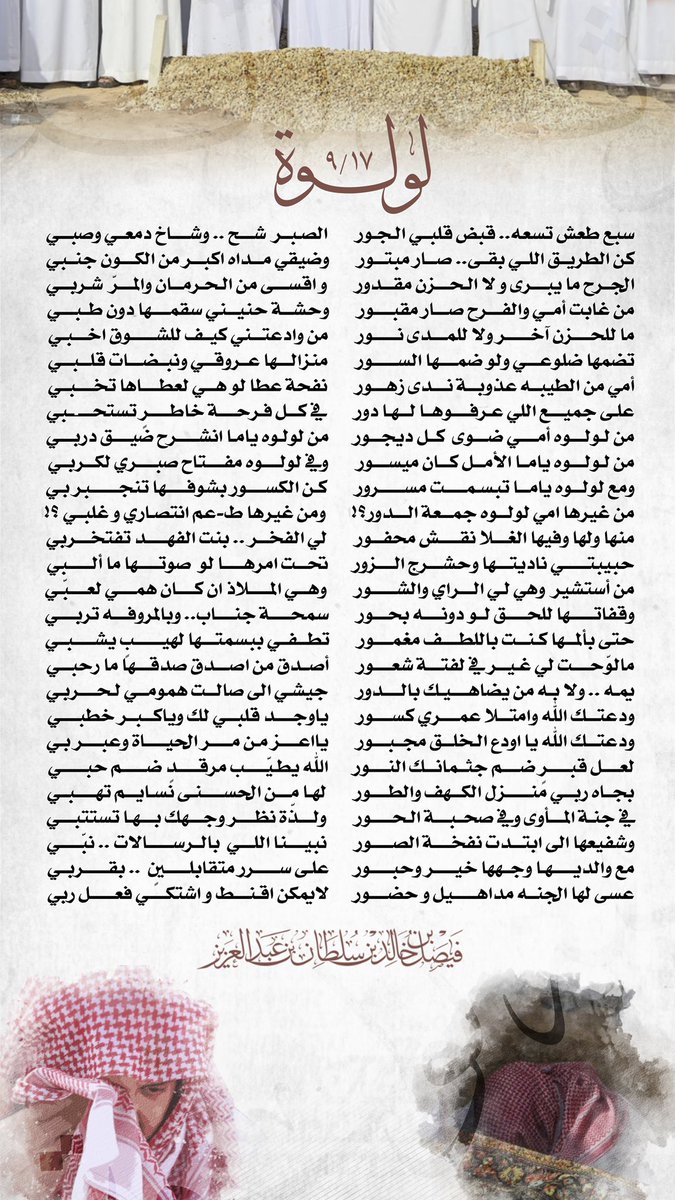 لولوة
٩/١٧
سبع طعش تسعه.. قبض قلبي الجور الصبر شح .. وشاخ دمعي وصبي
كن الطريق اللي بقى.. صار مبتور وضيقي مداه اكبر من الكون جنبي
الجرح ما يبرى و لا الحزن مقدور و اقسى من الحرمان والمرّ شربي
من غابت أمي والفرح صار مقبور وحشة حنيني سقمها دون طبي
ما للحزن آخر ولا للمدى نور من وادعتني كيف للشوق اخبي
تضمها ضلوعي ولو ضمها السور منزالها عروقي ونبضات قلبي
أمي من الطيبه عذوبة ندى زهور نفحة عطا لو هي لعطاها تخبي
على جميع اللي عرفوها لها دور في كل فرحة خاطر تستحبي
من لولوه أمي ضوى كل ديجور من لولوه ياما انشرح ضيق دربي
من لولوه ياما الأمل كان ميسور وفي لولوه مفتاح صبري لكربي
ومع لولوه ياما تبسمت مسرور كن الكسور بشوفها تنجبر بي
من غيرها امي لولوه جمعة الدور؟! ومن غيرها طـعم انتصاري و غلبي ؟!
منها ولها وفيها الغلا نقش محفور لي الفخر .. بنت الفهد تفتخر بي
حبيبتي ناديتها وحشرج الزور تحت امرها لو صوتها ما ألبي
من أستشير وهي لي الراي والشور وهي الملاذ ان كان همي لعبّي
وقفاتها للحق لو دونه بحور سمحة جناب.. وبالمروفه تربي
حتى بألمها كنت باللطف مغمور تطفي ببسمتها لهيب يشبي
مالوّحت لي غير في لفتة شعور أصدق من اصدق صدقها ما رحبي
يمه .. ولا به من يضاهيك بالدور جيشي الى صالت همومي لحربي
ودعتك الله وامتلا عمري كسور ياوجد قلبي لك وياكبر خطبي
ودعتك الله يا اودع الخلق مجبور يااعز من مر الحياة وعبر بي
لعل قبر ضم جثمانك النور الله يطيّب مرقد ضم حبي
بجاه ربي مَنزل الكهف والطور لها من الحسنى نسايم تهبي
في جنة المأوى وفي صحبة الحور ولذّة نظر وجهك بها تستتبي
وشفيعها الى ابتدت نفخة الصور نبينا اللي بالرسالات .. نبّي
مع والديها وجهها خير وحبور على سرر متقابلين .. بقربي
عسى لها الجنه مداهيل و حضور لايمكن اقنط و اشتكي فعل ربي
فيصل بن خالد بن سلطان بن عبدالعزيز